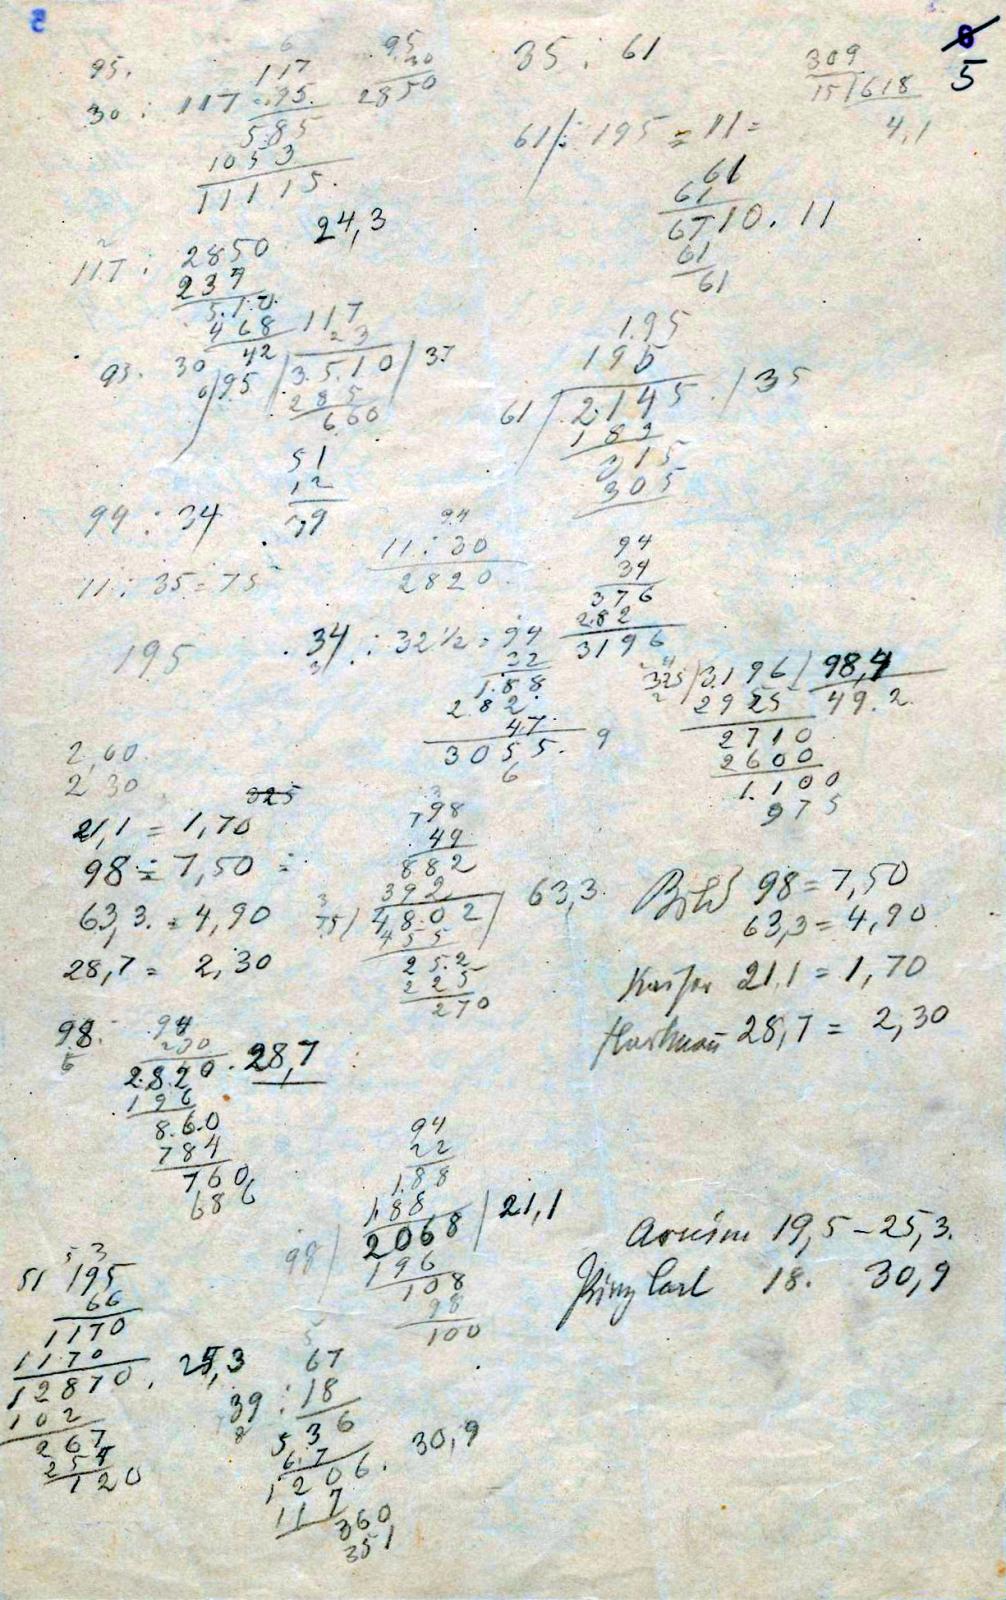 5
8
5
95.
30 : 117
6
117
95.
585
1053
11115.
95
30
2850
35 : 61
309
15/618
4,1
61/ : 195 = 11 =
61
61
6710. 11
61
61
24,3
2
117 : 2850
237
5.1.0.
468
42
117
23
93. 30
6/95 /3.5.10/ 37
285
660
1.95
195
61 /2.145./ 35
183
315
305
51
12
39
94 : 34
94
11 : 30
2820.
11 : 35 = 75
94
34
376
282
3196
195
34 : 32 1/2 = 94
32
1.88
282.
47.
3055. 9
6
325/3.196/98,4
2925 49.2.
2710
2600
1.100
975
2,60.
2,30
325
21,1 = 1,70
98 ÷ 7,50 ÷
63,3. = 4,90
28,7 = 2,30
798
49
882
392
75/4,8.02/ 63,3.
455
25.2
225
270
98 = 7,50
63,3 = 4,90
21,1 = 1,70
28,7 = 2,30
98.
6
94
200
2.820. 28,7
196
8.6.0
784
760
686
94
22
1.88
188
98/ 2068 /21,1
196
108
98
100
19,5 – 25,3.
18. 30,9
5 3
51 195
66
1170
1170
12870. 25,3
102
267
254
120
5
67
39 : 18
8
5 36
6.7
1206. 30,9
117
360
351